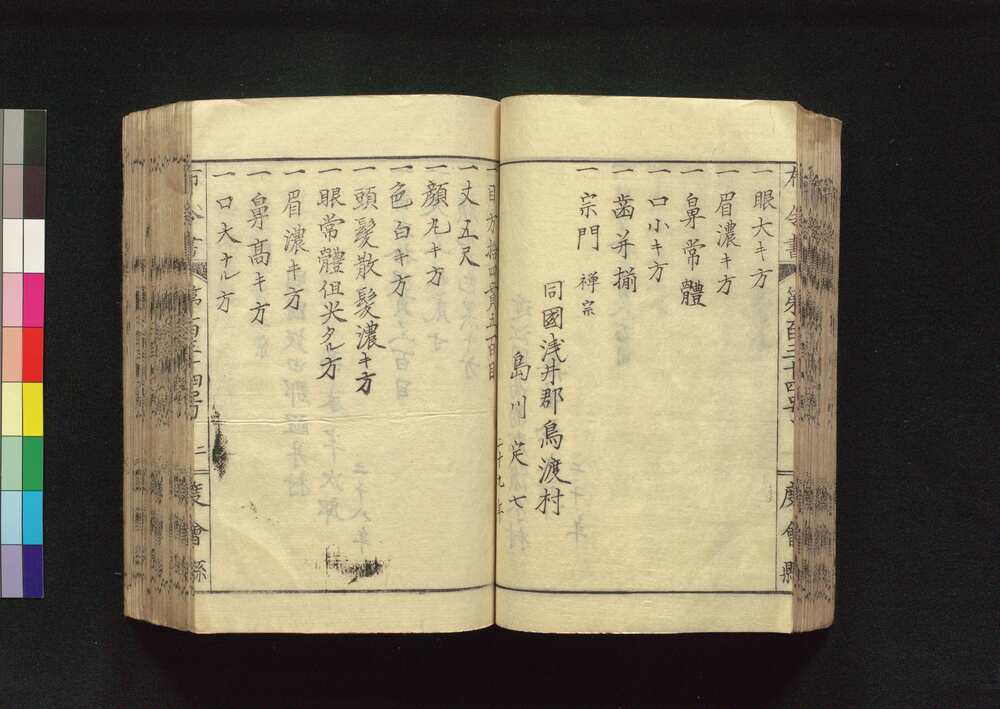 一眼大キ方
一眉濃キ方
一鼻常體
一口小キ方
一齒并揃
一宗門 禅宗
同國浅井郡鳥渡村
島川定七
二十九年
一目方拾四貫五百目
一丈五尺
一顔丸キ方
一色白キ方
一頭髮散髮濃キ方
一眼常體但尖タル方
一眉濃キ方
一鼻高キ方
一口大ナル方
布令書 第百三十四号 二 度會縣